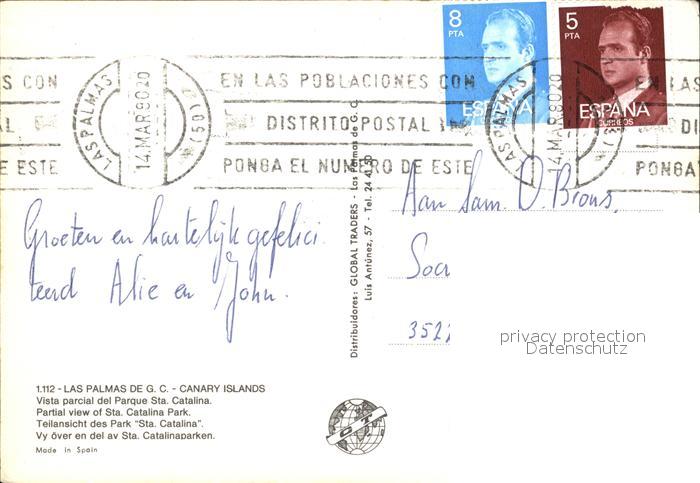 8 PTA
5 PTA
ESPAÑA
ESPAÑA
CORREOS
S CON
EN LAS POBLACIONES CON
EN LAS
LAS PALMAS
14.MAR.80.20
DISTRITO POSTAL
E ESTE
PONGA EL NUMERO DE ESTE
PONGA
LAS PALMAS
14 MAR 80 20
Distribuidores: GLOBAL TRADERS - Las Palmas de G. C.
Luis Antúnez, 57 - Tel. 24 41 50
Groeten en hartelijk gefelici
teerd Alie en John.
Aan Fam. O. Brons,
Soer
352
privacy protection
Datenschutz
1.112 - LAS PALMAS DE G. C. - CANARY ISLANDS
Vista parcial del Parque Sta. Catalina.
Partial view of Sta. Catalina Park.
Teilansicht des Park "Sta. Catalina".
Vy över en del av Sta. Catalinaparken.
Made in Spain